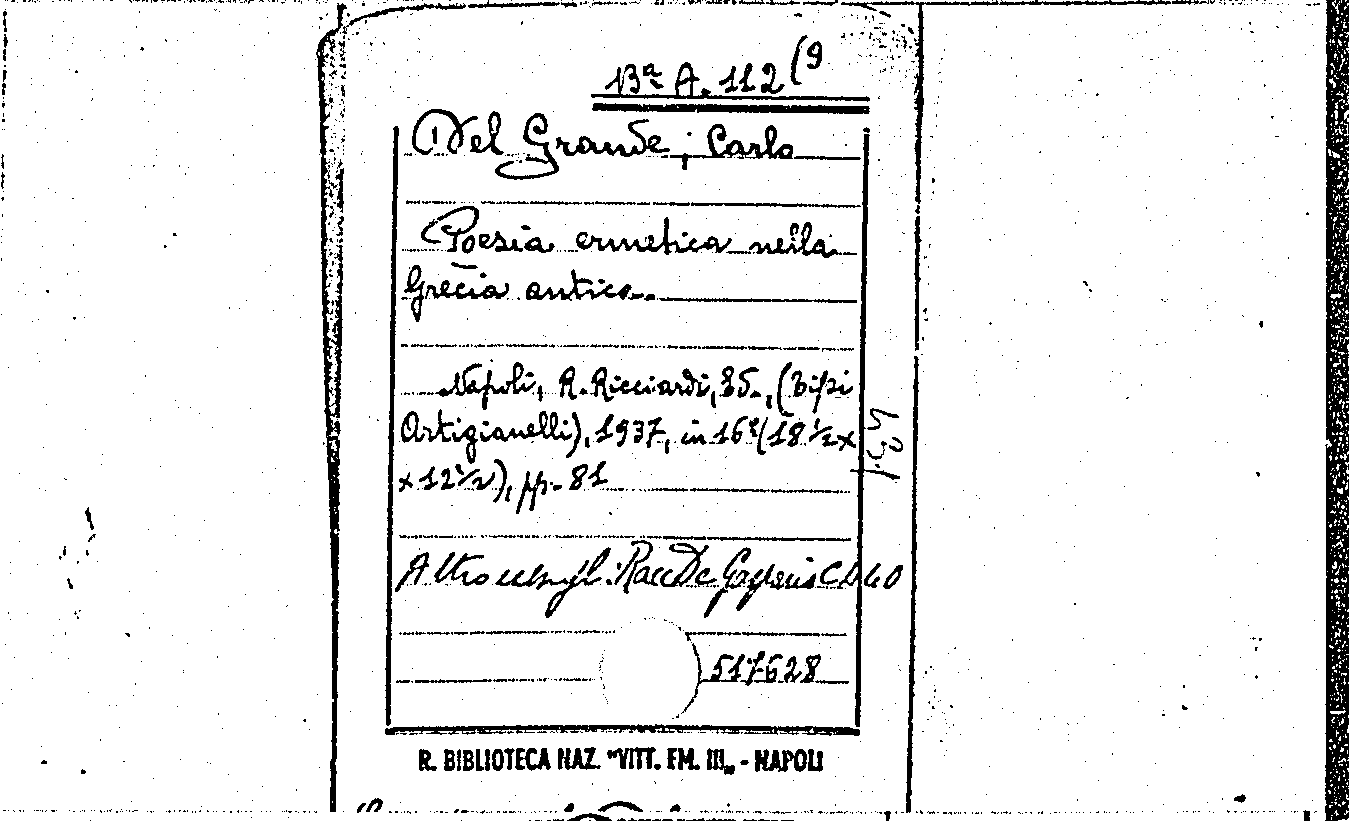 Bª A. 112 (9
Del Grande, Carlo
Poesia ermetica nella
Grecia antica.
Napoli, R. Ricciardi, Ed., (Tipi
Artigianelli), 1937, in 16º (18 ½ x
x 12 ½), pp. 81
Altro es. Racc. De Gasperis C
517628
R. BIBLIOTECA NAZ. "VITT. EM. III„ - NAPOLI